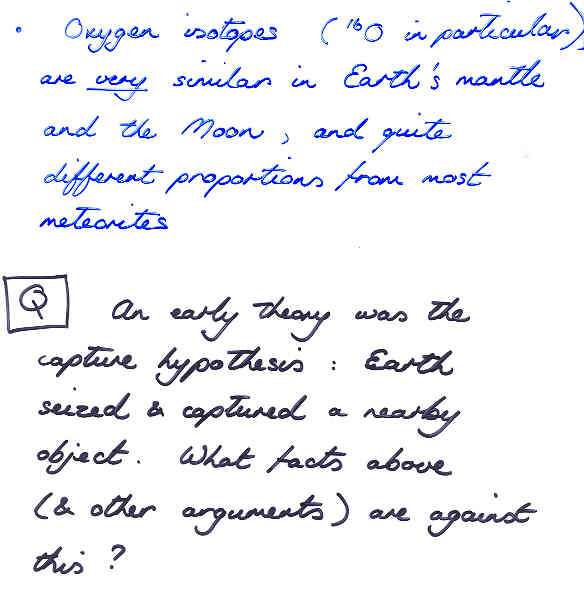 • Oxygen isotopes (¹⁶O in particular)
are very similar in Earth's mantle
and the Moon, and quite
different proportions from most
meteorites
Q An early theory was the
capture hypothesis : Earth
seized & captured a nearby
object. What facts above
(& other arguments) are against
this ?